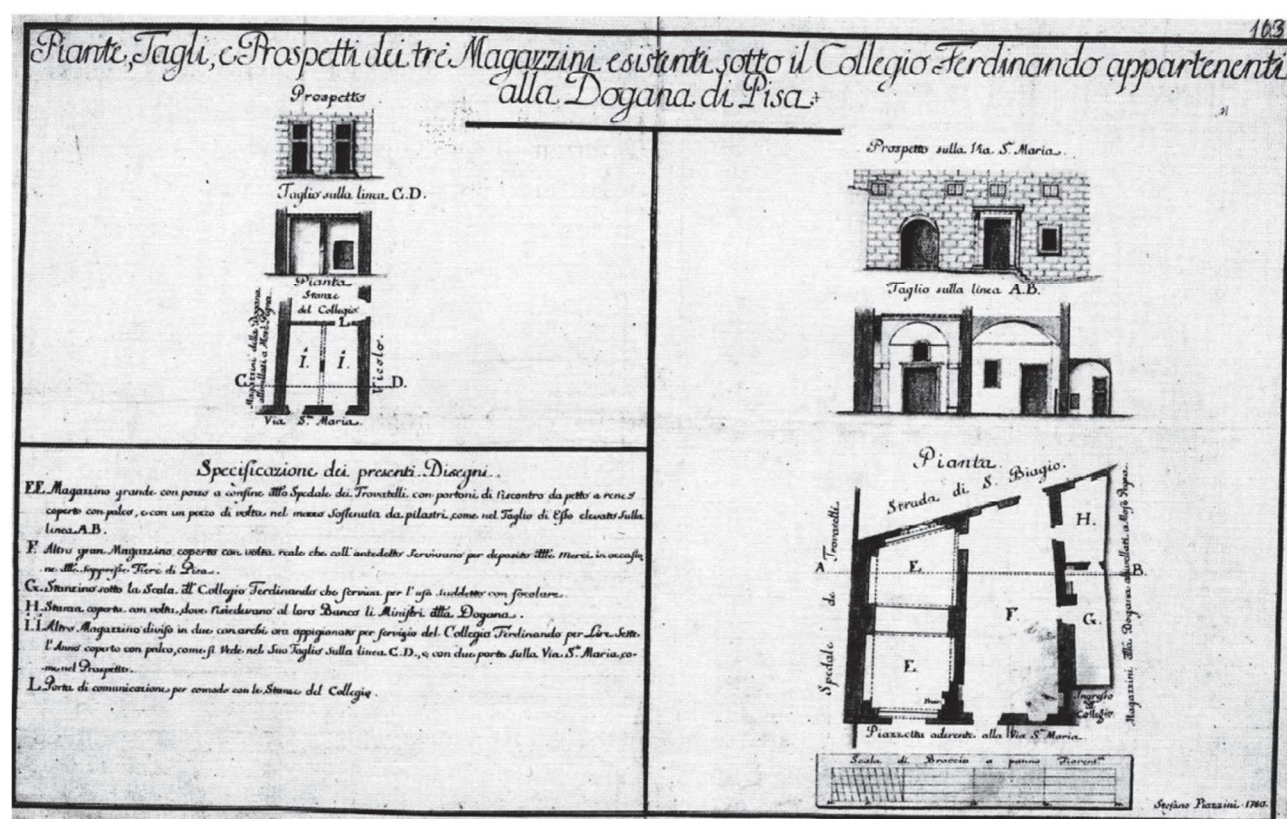 163
Piante, Tagli, e Prospetti dei tré Magazzini esistenti sotto il Collegio Ferdinando appartenenti
alla Dogana di Pisa
Prospetto
Taglio sulla linea C.D.
Pianta
Stanze
del Collegio
L.
I. I.
C. D.
Magazzini della Dogana
Vicolo.
Via S.ª Maria.
Specificazione dei presenti Disegni.
E.E. Magazzino grande con pozzo a confine allo Spedale dei Trovatelli con portoni di riscontro da petto a reni
coperto con palco, e con un pezzo di volta nel mezzo sostenuta da pilastri come nel Taglio di Esso elevato sulla
linea A.B.
F. Altro gran Magazzino coperto con volta reale che coll'antedetto servivano per deposito delle Merci in occasio
ne delle soppresse Fiere di Pisa.
G. Stanzino sotto la Scala del Collegio Ferdinando che serviva per l'uso suddetto con focolare.
H. Stanza coperta con volta, dove risiedevano al loro Banco li Ministri della Dogana.
I.I. Altro Magazzino diviso in due con archi ora appigionato per servizio del Collegio Ferdinando per Lire Sette
l'Anno coperto con palco, come si Vede nel Suo Taglio sulla linea C.D., e con due porte sulla Via S.ª Maria, co-
me nel Prospetto.
L. Porta di comunicazione per comodo con le Stanze del Collegio.
Prospetto sulla Via S.ª Maria.
Taglio sulla linea A.B.
Pianta.
Strada di S. Biagio.
Spedale de Trovatelli
A B.
E.
F.
E.
H.
G.
Pozzo
Ingresso
Collegio
Magazzini della Dogana allivellati a Mosè Pegna
Piazzetta aderente alla Via S.ª Maria.
Scala di Braccia a panno Fiorent.ⁿᵒ
Stefano Piazzini 1780.